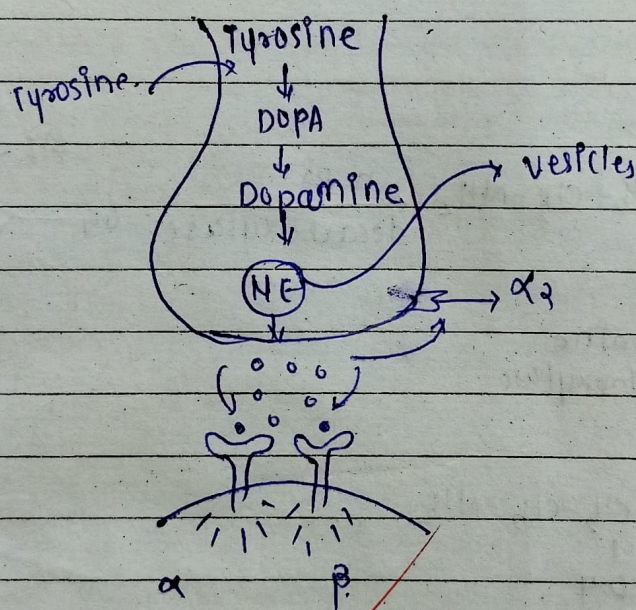 Tyrosine
Tyrosine
DOPA
Dopamine
vesicles
NE
α2
α β